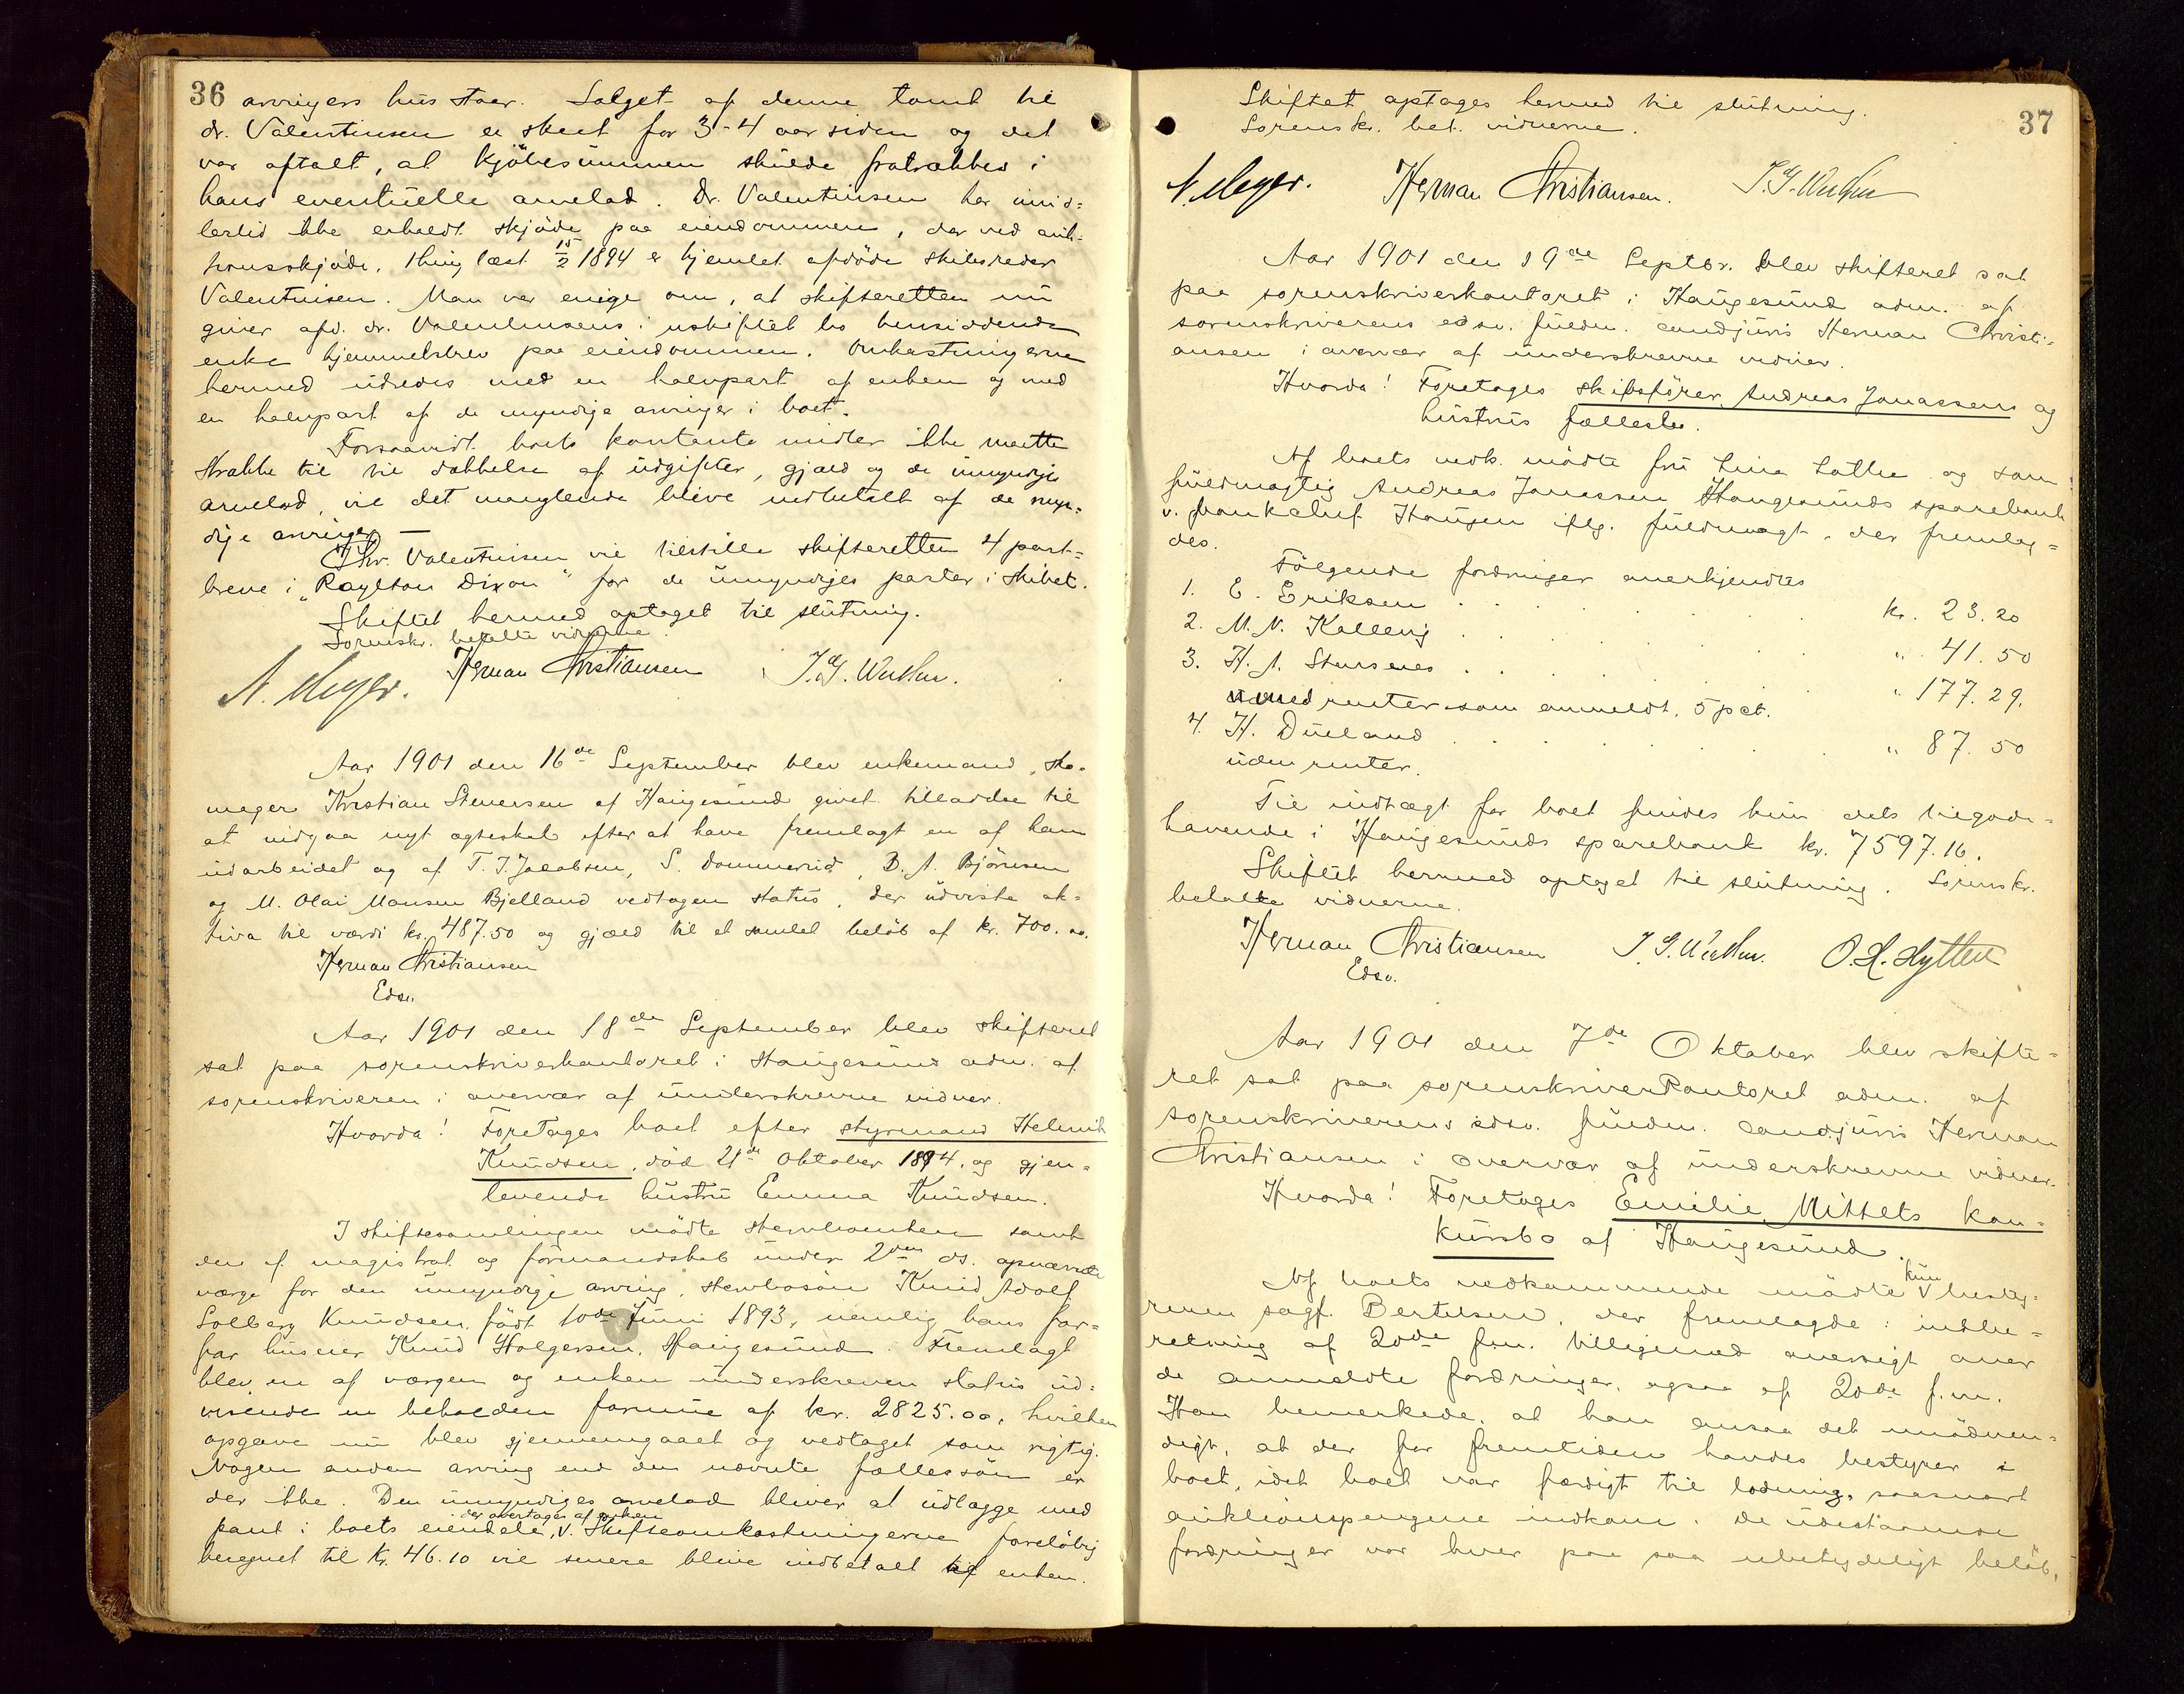 36
arvingers hus staar. Salget af denne tomt til
dr. Valentinsen er skeet for 3-4 aar siden og det
var aftalt, at kjöbesummen skulde fratrækkes i
hans eventuelle arvelod. Dr. Valentinsen har imid=
lertid ikke erholdt skjöde paa eiendommen, der ved auk=
tionsskjöde, thinglæst 15/2 1894 er hjemlet afdöde skibsreder
Valentinsen. Man var enige om, at skifteretten nu
giver afd. dr. Valentinsens i uskiftet bo hensiddende
enke hjemmelsbrev paa eiendommen. Omkostningerne
hermed udredes med en halvpart af enken og med
en halvpart af de myndige arvinger i boet.
Forsaavidt boets kontante midler ikke maatte
strække til til dækkelse af udgifter, gjæld og de umyndiges
arvelod, vil det manglende blive indbetalt af de myn=
dige arvinger. —
Chr. Valentinsen vil tilstille skifteretten 4 part=
breve i "Raylton Dixon" for de umyndiges parter i skibet.
Skiftet hermed optaget til slutning.
Sorenskr. betalte vidnerne.
A. Meyer. Herman Christiansen J. G. Wathne.
Aar 1901 den 16de September blev enkemand, sko=
mager Kristian Stenersen af Haugesund givet tilladelse til
at indgaa nyt ægteskab efter at have fremlagt en af ham
udarbeidet og af T. J. Jacobsen, S. Dommersnd, B. A. Björnsen
og M. Olai Monsen Bjelland vedtagen status, der udviste ak=
tiva til værdi kr. 487.50 og gjæld til et samlet belöb af kr. 700.00.
Herman Christiansen
Edsv.
Aar 1901 den 18de September blev skifteret
sat paa sorenskriverkontoret i Haugesund adm. af
sorenskriveren i overvær af underskrevne vidner.
Hvorda! Foretoges boet efter styrmand Helmik
Knudsen, död 21de Oktober 1894, og gjen=
levende hustru Emma Knudsen.
I skiftesamlingen mödte sterboenken samt
den af magistrat og formandskab under 2den ds. opnævnte
værge for den umyndige arving, sterbosön Knud Adolf
Solberg Knudsen, födt 10de Juni 1893, nemlig hans far=
far huseier Knud Holgersen, Haugesund. Fremlagt
blev en af værgen og enken underskreven status ud=
visende en beholden formue af kr. 2825.00, hvilken
opgave nu blev gjennemgaaet og vedtaget som rigtig.
Nogen anden arving end den nævnte fællessön er
der ikke. Den umyndiges arvelod bliver at udlægge med
der overtages af enken
pant i boets eiendele, v. Skifteomkostningerne foreløbig
beregnet til kr. 46.10 vil senere blive indbetalt af enken.
37
Skiftet optages hermed til slutning.
Sorenskr. bet. vidnerne.
A. Meyer. Herman Christiansen. J. G. Wathne
Aar 1901 den 19de Septbr. blev skifteret sat
paa sorenskriverkontoret i Haugesund adm. af
sorenskriverens edsv. fuldm. cand juris Herman Christi=
ansen i overvær af underskrevne vidner.
Hvorda! Foretoges skibsförer Andreas Jonassens og
hustrus fællesbo.
Af boets vedk. mödte fru Lina Lothe og som
fuldmægtig Andreas Jonassen Haugesunds sparebank
v. bankchef Haugen iflg. fuldmagt, der fremlag=
des.
Fölgende fordringer anerkjendtes
1. E. Eriksen . . . kr. 23.20
2. M. N. Kallevig . . . " 41.50
3. H. A. Stursenes . . . " 177.29.
med renter som anmeldt, 5 pct.
4. H. Dueland . . . " 87.50
uden renter.
Til indtægt for boet findes kun dets tilgode=
havende i Haugesunds sparebank kr. 7597.16.
Skiftet hermed optaget til slutning. Sorenskr.
betalte vidnerne.
Herman Christiansen J. G. Wathne. O. H. Hytten
Edsv.
Aar 1901 den 7de Oktober blev skifte=
ret sat paa sorenskriverkontoret adm. af
sorenskriverens edsv. fuldm. cand. juris Herman
Christiansen i overvær af underskrevne vidner.
Hvorda! Foretoges Emilie Mittets kon=
kursbo af Haugesund.
kun
Af boets vedkommende mödte v besty=
reren sagf. Bertelsen, der fremlagde: indbe=
retning af 20de f.m. tilligemed oversigt over
de anmeldte fordringer, ogsaa af 20de f.m.
Han bemerkede, at han ansaa det unödven=
digt, at der for fremtiden havdes bestyrer i
boet, idet boet var færdigt til lodning, saasnart
auktionspengene indkom. De udestaaende
fordringer var hver paa saa ubetydeligt belöb,